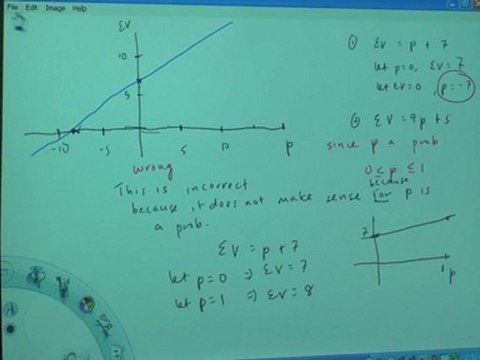 File Edit Image Help
EV
10
5
-10 -5 5 10 p
① EV = p + 7
let p=0, EV = 7
let EV=0, p=-7
② EV = 9p+5
since p a prob
0 ≤ p ≤ 1
wrong
This is incorrect because
because it does not make sense for p is
a prob.
EV = p+7
let p=0 ⇒ EV = 7
let p=1 ⇒ EV = 8
7
1 p